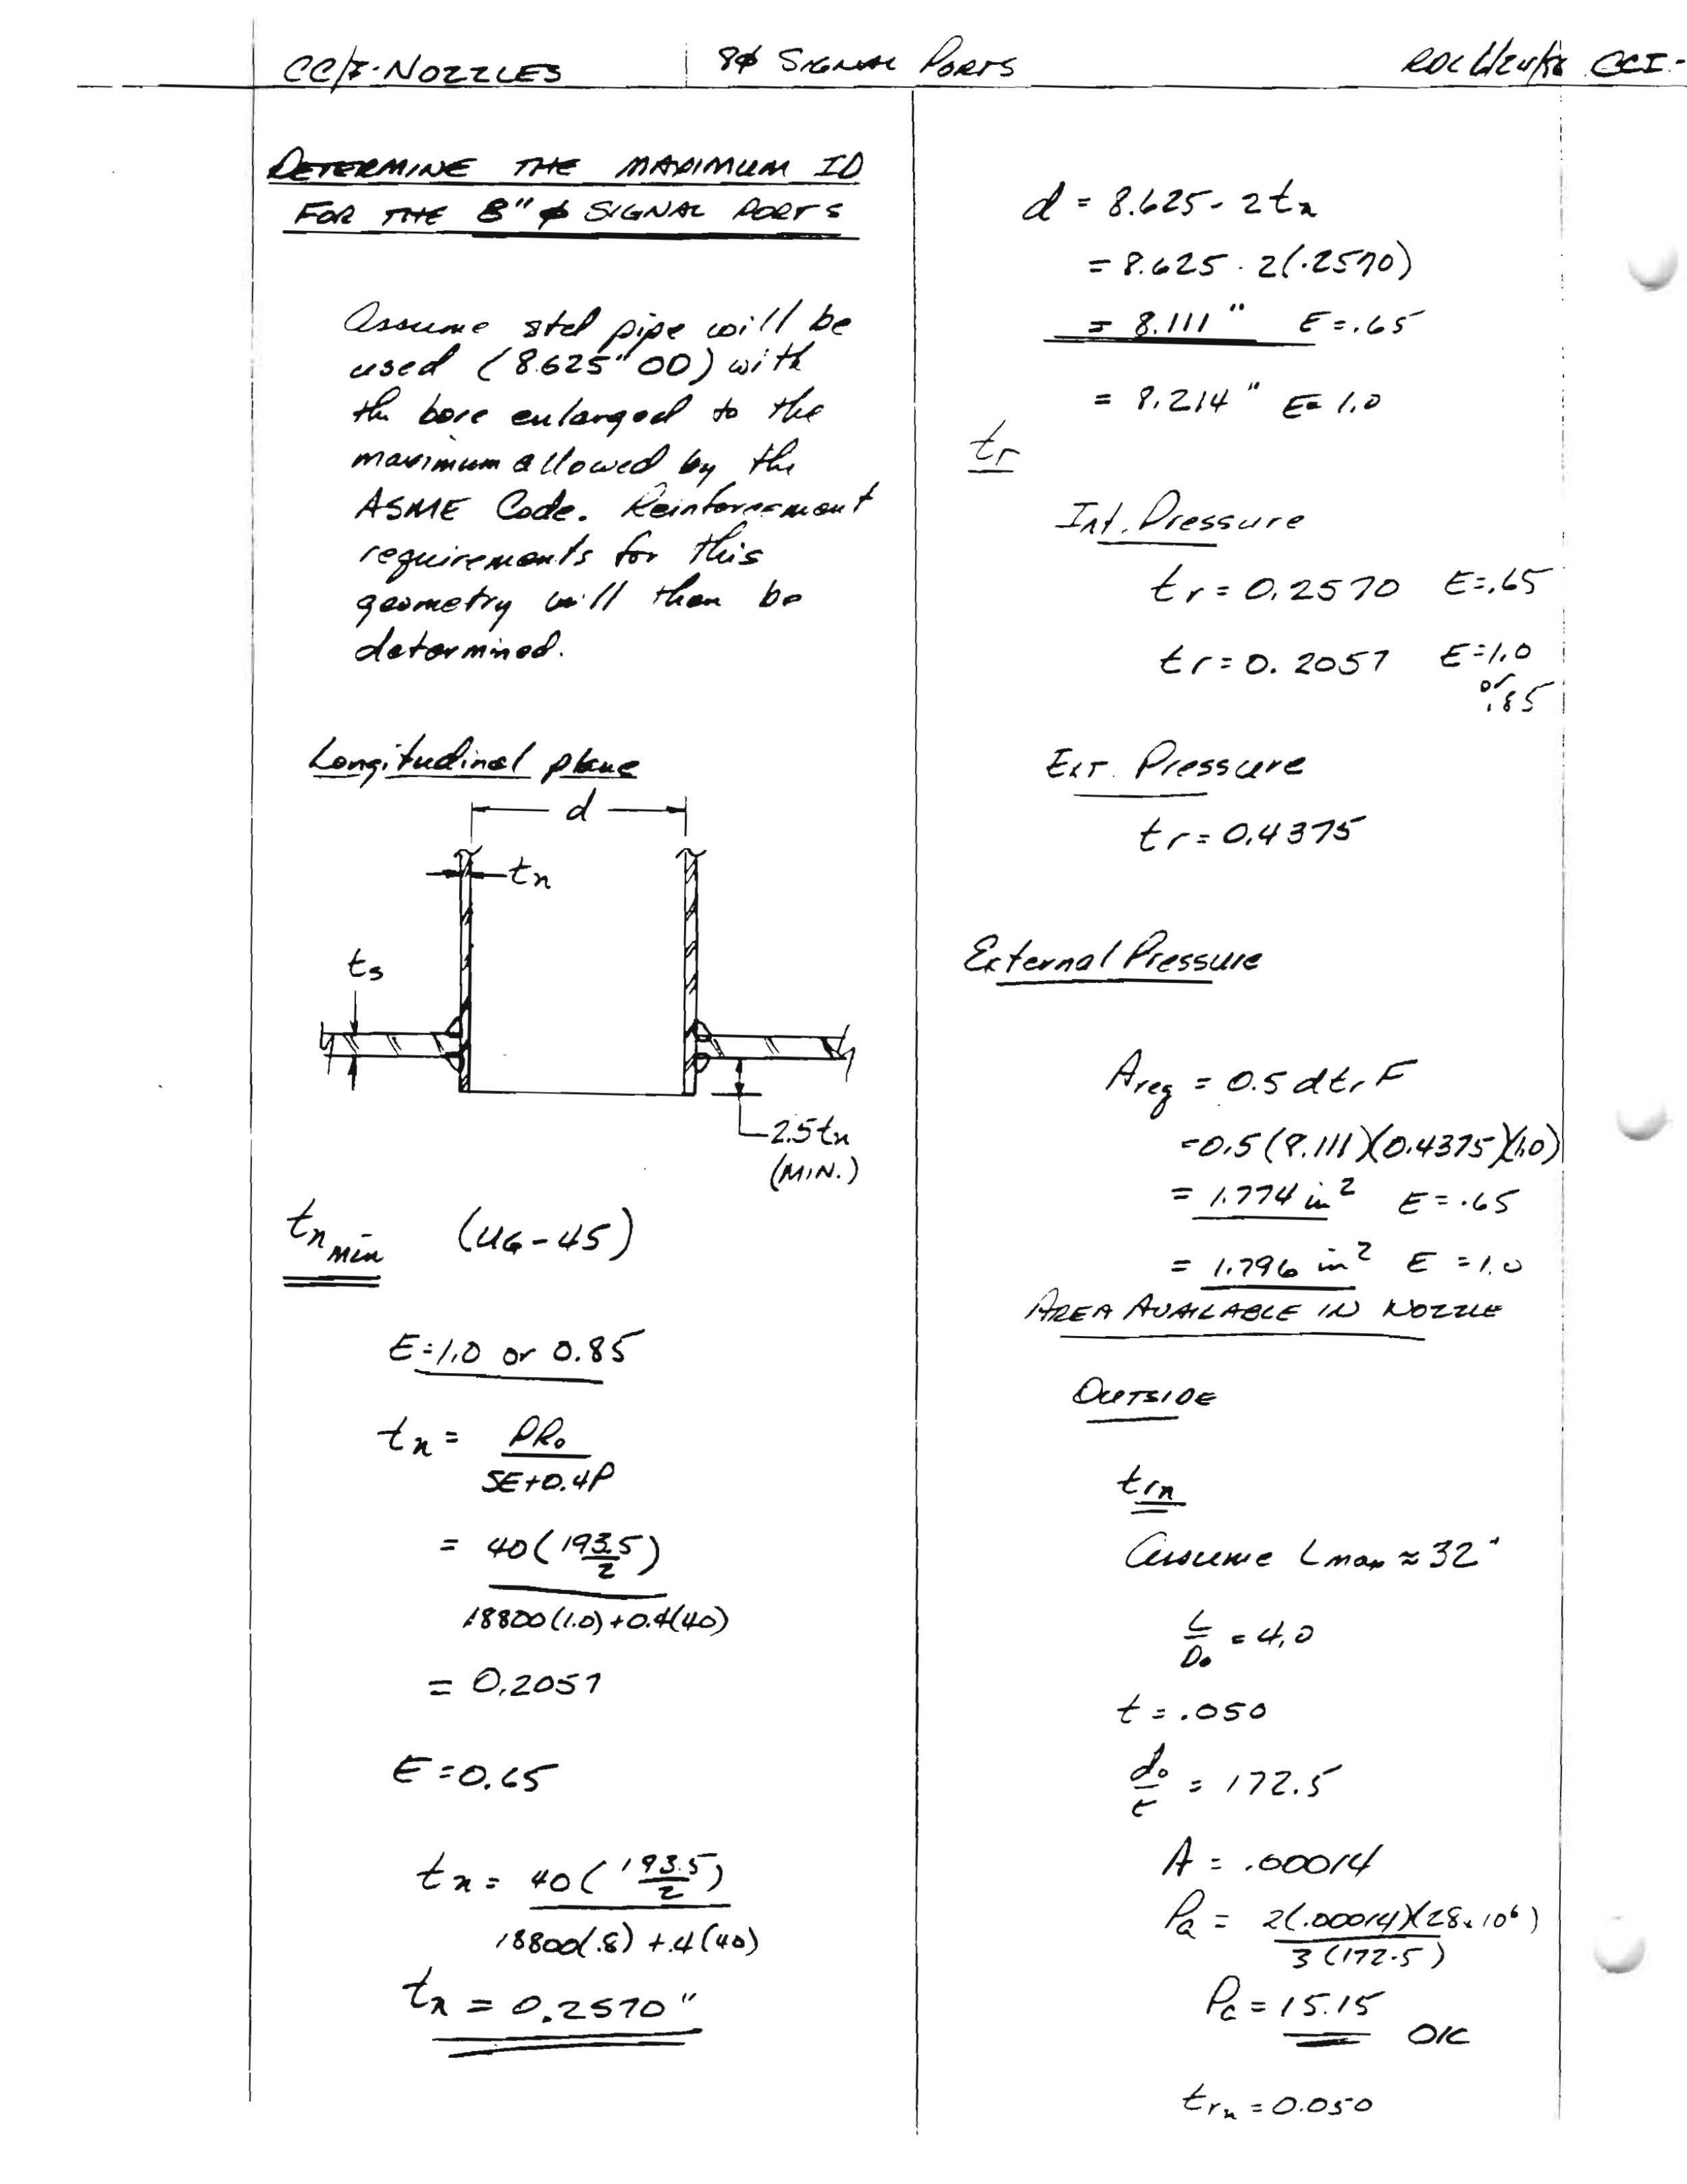 CC/I-NOZZLES 8φ SIGNAL PORTS RDL CCI-
DETERMINE THE MAXIMUM ID
FOR THE 8"φ SIGNAL PORTS
Assume std pipe will be
used (8.625" OD) with
the bore enlarged to the
maximum allowed by the
ASME Code. Reinforcement
requirements for this
geometry will then be
determined.
Longitudinal plane
d
tn
ts
2.5tn
(MIN.)
tn min (UG-45)
E=1.0 or 0.85
tn = PRo / SE+0.4P
= 40(193.5/2) / 18800(1.0)+0.4(40)
= 0.2057
E=0.65
tn = 40(193.5/2) / 18800(.8)+.4(40)
tn = 0.2570"
d = 8.625-2tn
= 8.625-2(.2570)
= 8.111" E=.65
= 8.214" E=1.0
tr
Int. Pressure
tr=0.2570 E=.65
tr=0.2057 E=1.0
or
.85
Ext. Pressure
tr=0.4375
External Pressure
Areq = 0.5 dtr F
=0.5(8.111)(0.4375)(1.0)
= 1.774 in² E=.65
= 1.796 in² E=1.0
AREA AVAILABLE IN NOZZLE
OUTSIDE
trn
Assume Lmax ≈ 32"
L/Do = 4.0
t = .050
do/t = 172.5
A = .00014
Pa = 2(.00014)(28x10⁶) / 3(172.5)
Pa = 15.15 OK
trn = 0.050